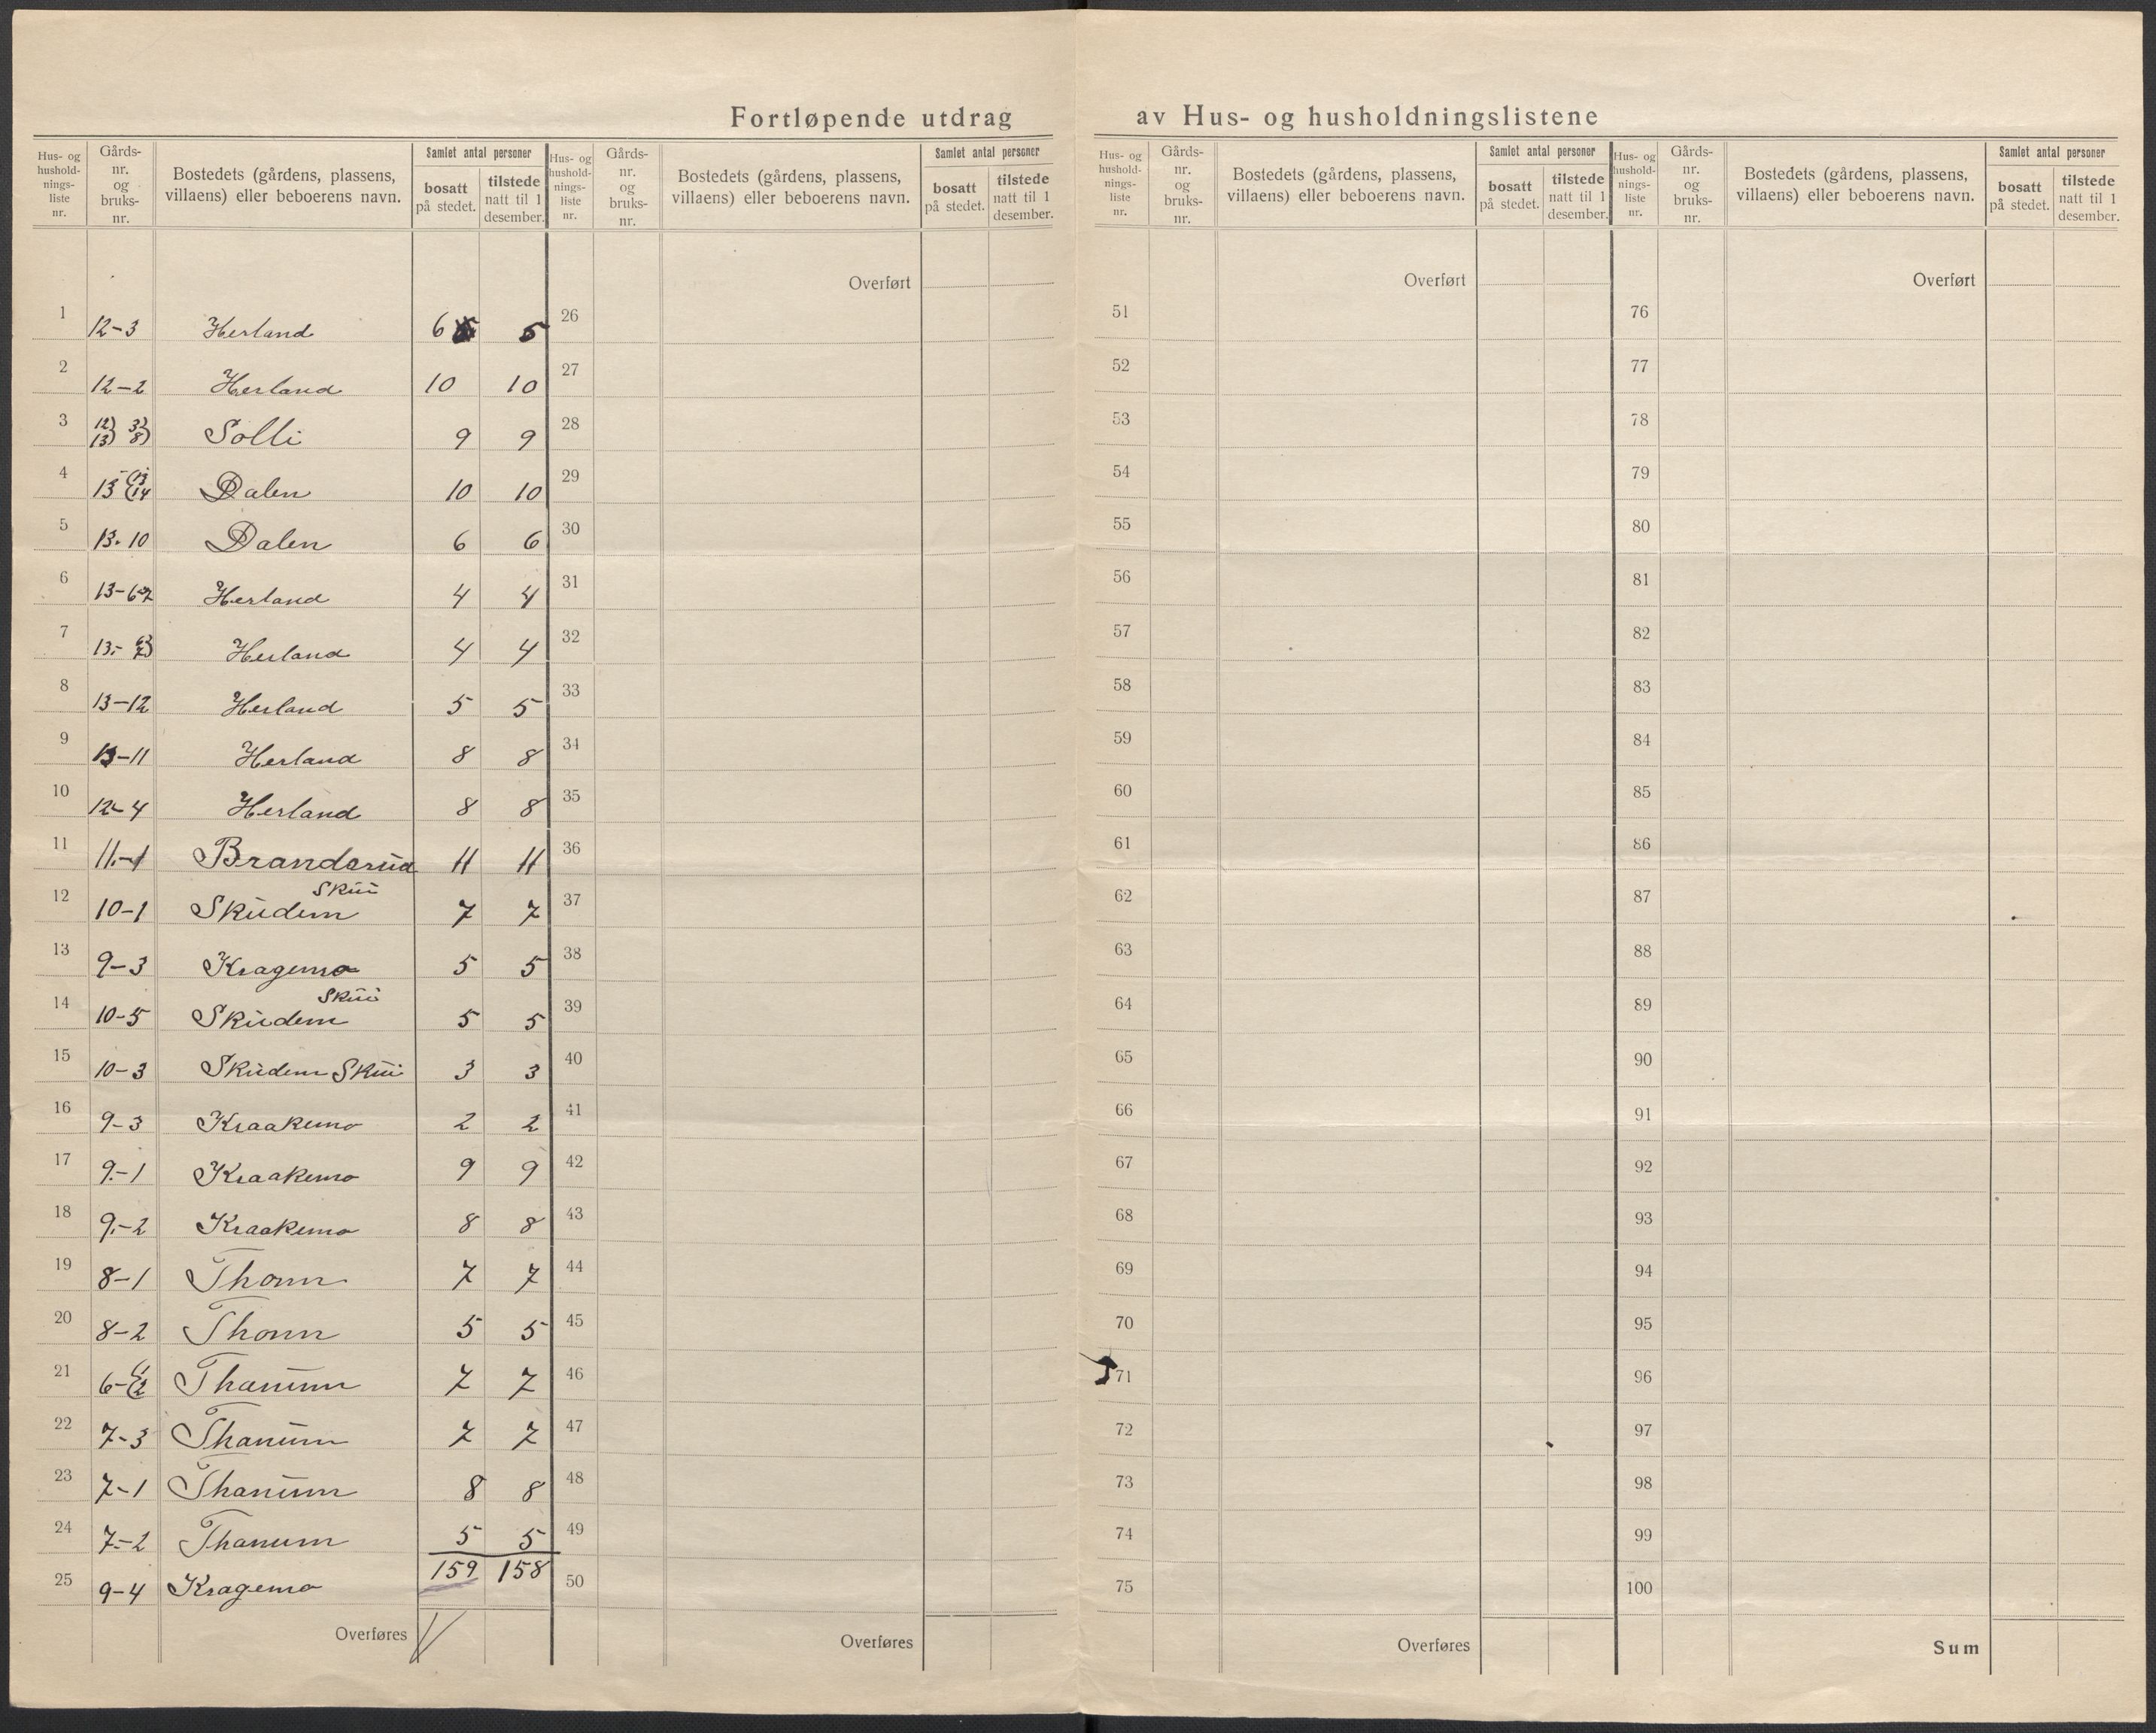 Fortløpende utdrag av Hus- og husholdningslistene
Hus- og hushold-nings-liste nr. Gårds-nr. og bruks-nr. Bostedets (gårdens, plassens, villaens) eller beboerens navn. Samlet antal personer bosatt på stedet. tilstede natt til 1 desember.
Hus- og hushold-nings-liste nr. Gårds-nr. og bruks-nr. Bostedets (gårdens, plassens, villaens) eller beboerens navn. Samlet antal personer bosatt på stedet. tilstede natt til 1 desember.
Hus- og hushold-nings-liste nr. Gårds-nr. og bruks-nr. Bostedets (gårdens, plassens, villaens) eller beboerens navn. Samlet antal personer bosatt på stedet. tilstede natt til 1 desember.
Hus- og hushold-nings-liste nr. Gårds-nr. og bruks-nr. Bostedets (gårdens, plassens, villaens) eller beboerens navn. Samlet antal personer bosatt på stedet. tilstede natt til 1 desember.
Overført Overført Overført
1 12-3 Herland 6 5 26 51 76
2 12-2 Herland 10 10 27 52 77
3 12) 3) 13) 8) Solli 9 9 28 53 78
4 13 (13 (14 Dalen 10 10 29 54 79
5 13-10 Dalen 6 6 30 55 80
6 13-6-7 Herland 4 4 31 56 81
7 13- Herland 4 4 32 57 82
8 13-12 Herland 5 5 33 58 83
9 13-11 Herland 8 8 34 59 84
10 12-4 Herland 8 8 35 60 85
11 11-1 Brandsrud 11 11 36 61 86
12 10-1 Skudem Skui 7 7 37 62 87
13 9-3 Kragemo 5 5 38 63 88
14 10-5 Skudem Skui 5 5 39 64 89
15 10-3 Skudem Skui 3 3 40 65 90
16 9-3 Kraakemo 2 2 41 66 91
17 9-1 Kraakemo 9 9 42 67 92
18 9-2 Kraakemo 8 8 43 68 93
19 8-1 Thonn 7 7 44 69 94
20 8-2 Thonn 5 5 45 70 95
21 6-(1 (2 Thanum 7 7 46 71 96
22 7-3 Thanum 7 7 47 72 97
23 7-1 Thanum 8 8 48 73 98
24 7-2 Thanum 5 5 49 74 99
25 9-4 Kragemo 159 158 50 75 100
Overføres Overføres Overføres Sum